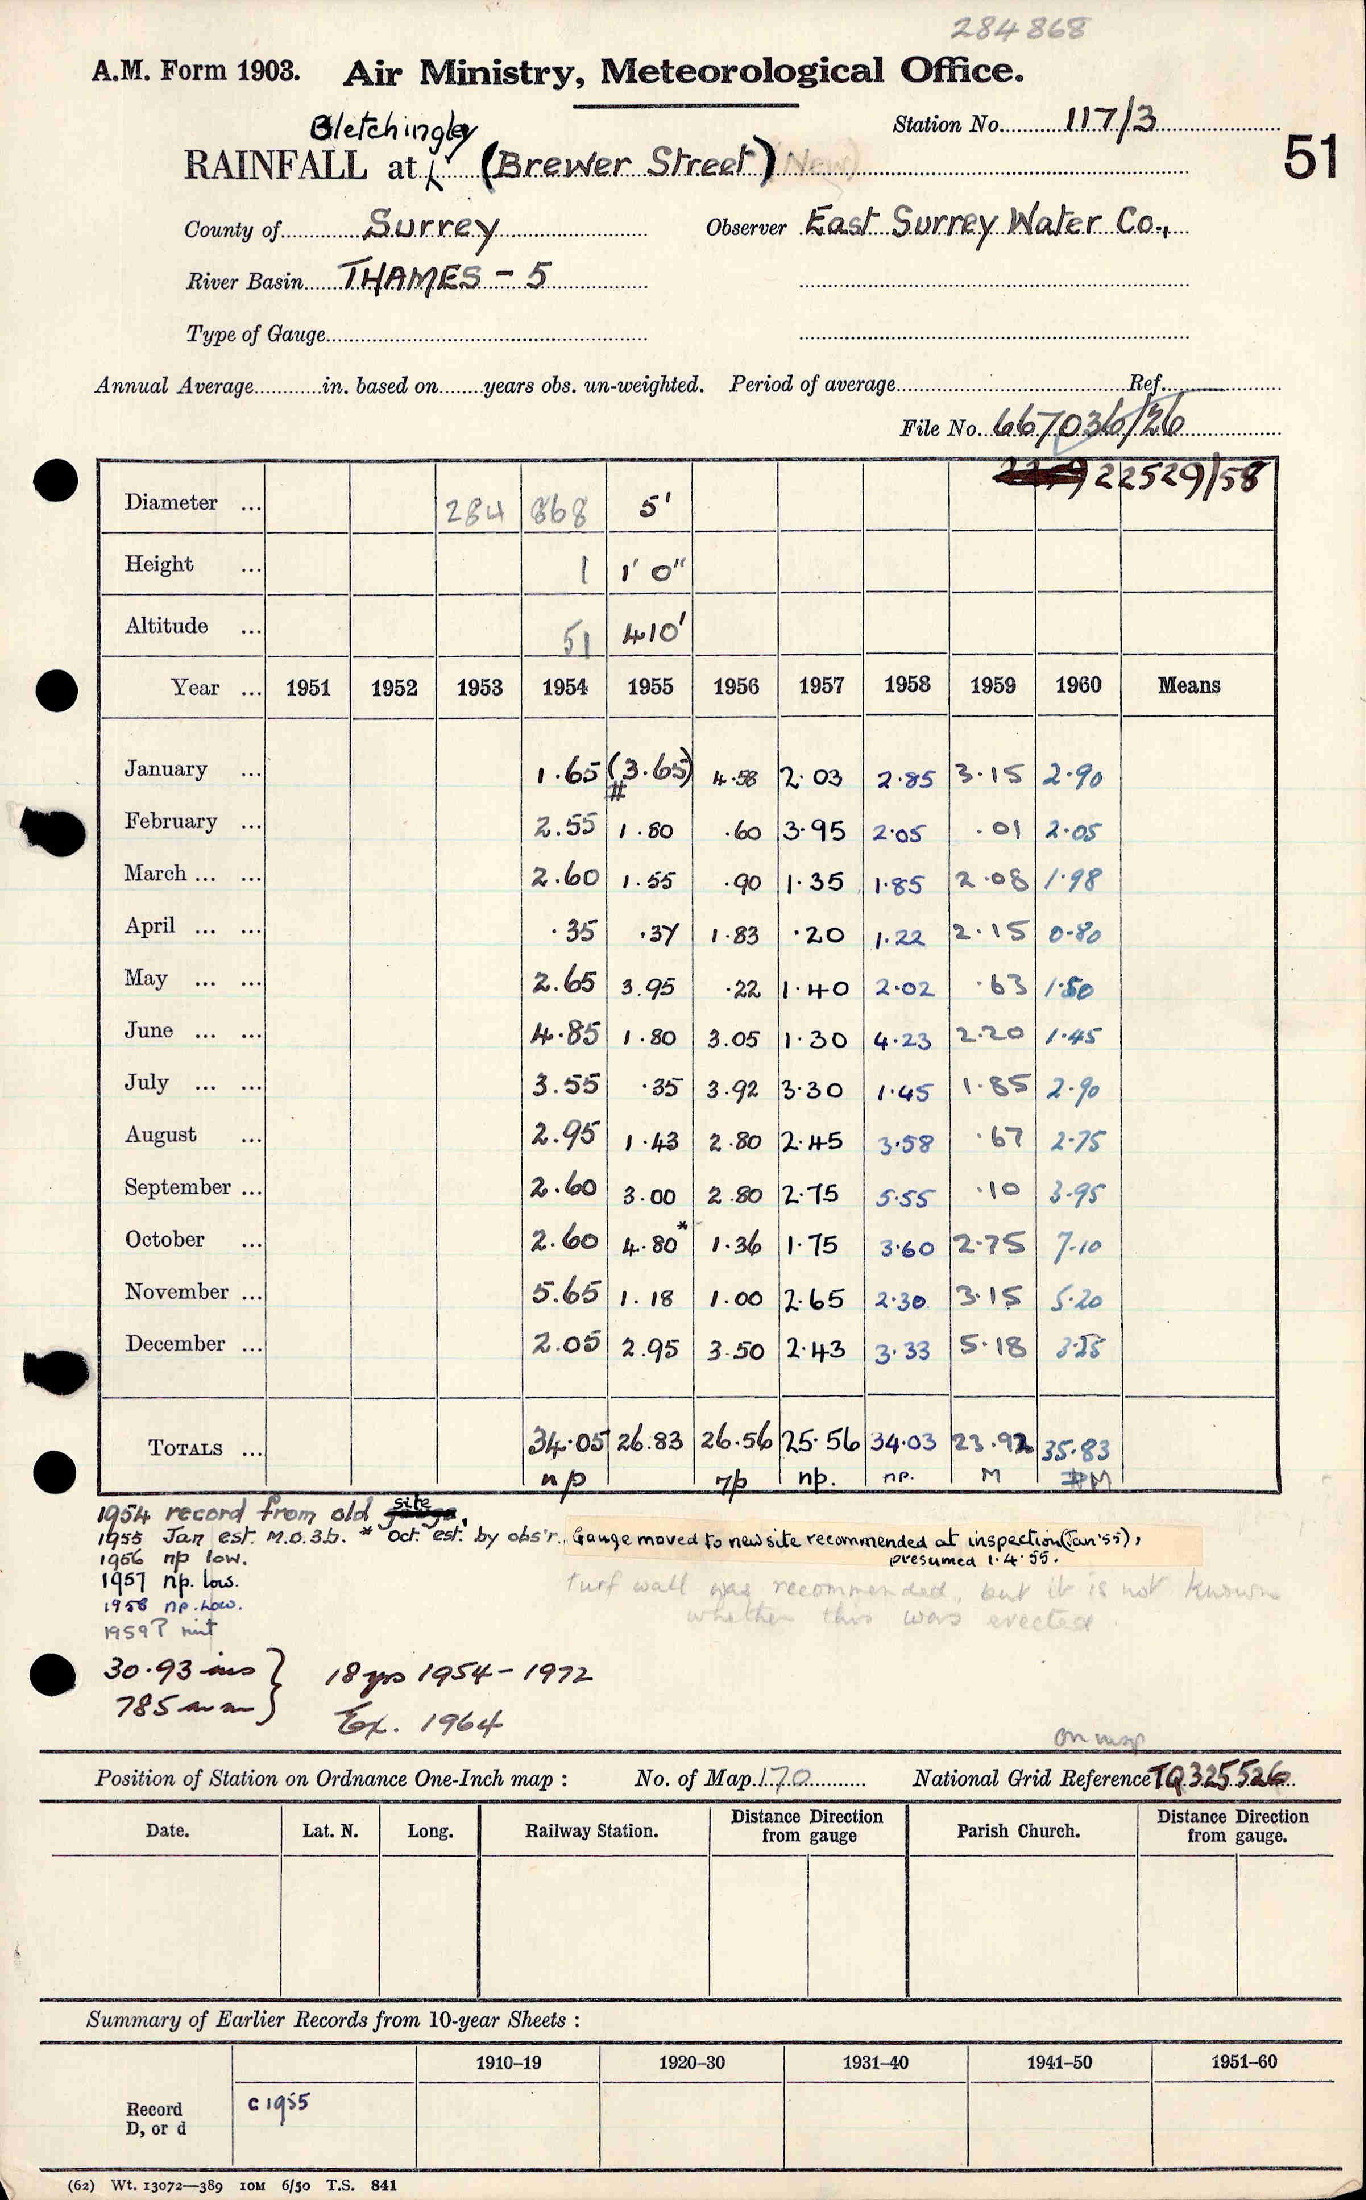 284868
A.M. Form 1903. Air Ministry, Meteorological Office.
Station No. 117/3
51
Bletchingley
RAINFALL at (Brewer Street) (New)
County of Surrey Observer East Surrey Water Co.,
River Basin THAMES - 5
Type of Gauge
Annual Average in. based on years obs. un-weighted. Period of average Ref.
File No. 667036/26
22529/58
Diameter ... 284 868 5'
Height ... 1 1' 0"
Altitude ... 51 410'
Year ... 1951 1952 1953 1954 1955 1956 1957 1958 1959 1960 Means
January ... 1.65 (3.65) # 4.58 2.03 2.85 3.15 2.90
February ... 2.55 1.80 .60 3.95 2.05 .01 2.05
March ... ... 2.60 1.55 .90 1.35 1.85 2.08 1.98
April ... ... .35 .37 1.83 .20 1.22 2.15 0.80
May ... ... 2.65 3.95 .22 1.40 2.02 .63 1.50
June ... ... 4.85 1.80 3.05 1.30 4.23 2.20 1.45
July ... ... 3.55 .35 3.92 3.30 1.45 1.85 2.90
August ... 2.95 1.43 2.80 2.45 3.58 .67 2.75
September ... 2.60 3.00 2.80 2.75 5.55 .10 3.95
October ... 2.60 4.80* 1.36 1.75 3.60 2.75 7.10
November ... 5.65 1.18 1.00 2.65 2.30 3.15 5.20
December ... 2.05 2.95 3.50 2.43 3.33 5.18
TOTALS ... 34.05 26.83 26.56 25.56 34.03 23.92 35.83
np np np. np. M M
1954 record from old site.
1955 Jan est. M.O.3b. * Oct. est. by obs'r. Gauge moved to new site recommended at inspection (Jan '55),
presumed 1.4.55.
1956 np low.
1957 np. low.
1958 np. low.
1959?
turf wall was recommended, but it is not known
whether this was erected.
30.93 ins } 18 yrs 1954 - 1972
785 mm } Ex. 1964
on map
Position of Station on Ordnance One-Inch map : No. of Map 170 National Grid Reference TQ 325526
Date. Lat. N. Long. Railway Station. Distance Direction from gauge Parish Church. Distance Direction from gauge.
Summary of Earlier Records from 10-year Sheets :
1910–19 1920–30 1931–40 1941–50 1951–60
Record
D, or d
C 1955
(62) Wt. 13072—389 10M 6/50 T.S. 841